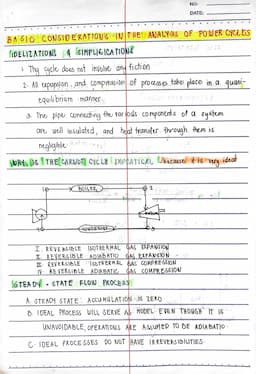 NO:
DATE:
BASIC CONSIDERATIONS IN THE ANALYSIS OF POWER CYCLES
IDEALIZATIONS & SIMPLIFICATIONS
1. The cycle does not involve any friction
2. All expansion, and compression of processes take place in a quasi-
equilibrium manner.
3. The pipe connecting the various components of a system
are well insulated, and heat transfer through them is
negligible
THE CARNOT CYCLE because it is very ideal
BOILER
I. REVERSIBLE ISOTHERMAL GAS EXPANSION
II. REVERSIBLE ADIABATIC GAS EXPANSION
III. REVERSIBLE ISOTHERMAL GAS COMPRESSION
IV. REVERSIBLE ADIABATIC GAS COMPRESSION
STEADY - STATE FLOW PROCESS
A. STEADY STATE: ACCUMULATION IS ZERO
B. IDEAL PROCESS WILL SERVE AS MODEL EVEN THOUGH IT IS
UNAVOIDABLE, OPERATIONS ARE ASSUMED TO BE ADIABATIC
C. IDEAL PROCESSES DO NOT HAVE IRREVERSIBILITIES